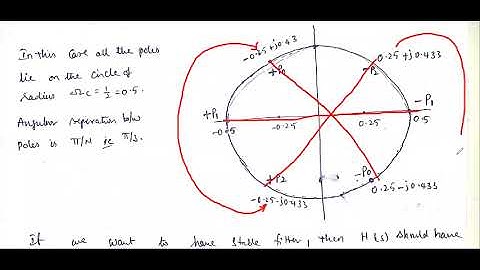 In this case all the poles
lie on the circle of
radius Ωc = 1/2 = 0.5.
Angular separation b/w
poles is π/N ie π/3.
-0.25+j0.43
+P0
0.25+j0.433
-P2
+P1
-0.5
-0.25
0.25
-P1
0.5
+P2
-0.25-j0.433
-P0
0.25-j0.433
If we want to have stable filter, then H(s) should have